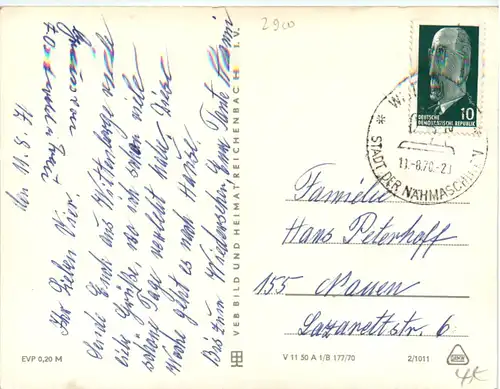 den 11.8.71
Ihr Lieben Vier!
Sende Euch aus Wittenberge viele
liebe Grüße, wo ich schon viele
schöne Tage verlebt habe. Diese
Woche geht es nach Hause.
Bis zum Wiedersehn Eure Tante Hanni
Grüße von
EVP 0,20 M
VEB BILD UND HEIMAT REICHENBACH I. V.
V 11 50 A 1/B 177/70
2/1011
2900
DEUTSCHE
DEMOKRATISCHE REPUBLIK
10
STADT DER NÄHMASCHINEN
11.-8.70.-20
Familie
Hans Peterhoff
155 Nauen
Lazarettstr. 6